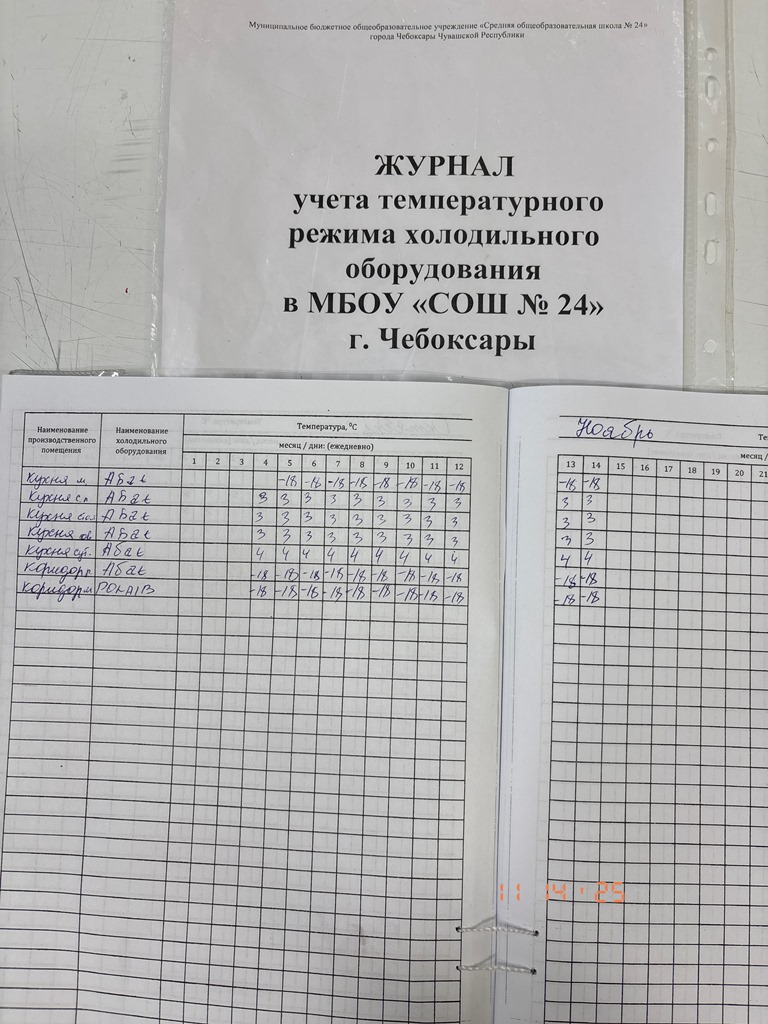 Муниципальное бюджетное общеобразовательное учреждение «Средняя общеобразовательная школа № 24»
города Чебоксары Чувашской Республики
ЖУРНАЛ
учета температурного
режима холодильного
оборудования
в МБОУ «СОШ № 24»
г. Чебоксары
Наименование производственного помещения
Наименование холодильного оборудования
Температура, ⁰С
месяц / дни: (ежедневно)
1 2 3 4 5 6 7 8 9 10 11 12
Кухня м АБат -18 -18 -18 -18 -18 -18 -18 -18
Кухня АБат 3 3 3 3 3 3 3 3 3
Кухня АБат 3 3 3 3 3 3 3 3 3
Кухня АБат 3 3 3 3 3 3 3 3 3
Кухня сут. Абат 4 4 4 4 4 4 4 4 4
Коридор Абат -18 -18 -18 -18 -18 -18 -18 -18 -18
Коридор -18 -18 -18 -18 -18 -18 -18 -18 -18
Ноябрь
Те
месяц /
13 14 15 16 17 18 19 20 21
-18 -18
3 3
3 3
3 3
4 4
-18 -18
-18 -18
11 14 '25